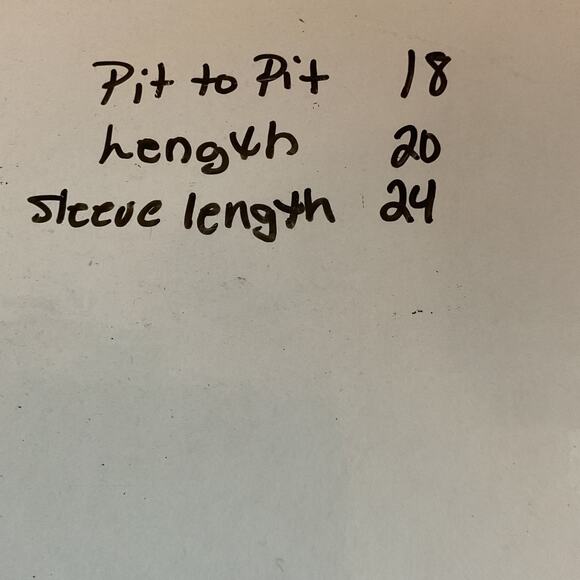 Pit to Pit 18
Length 20
Sleeve length 24